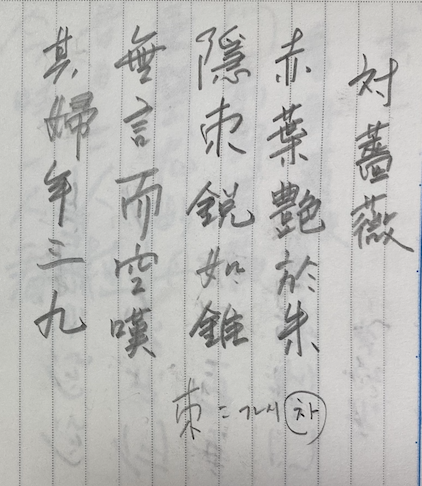 対薔薇
赤葉艶於朱
隠朿鋭如錐
無言而空嘆
其婦年三九
朿 = 가시 차